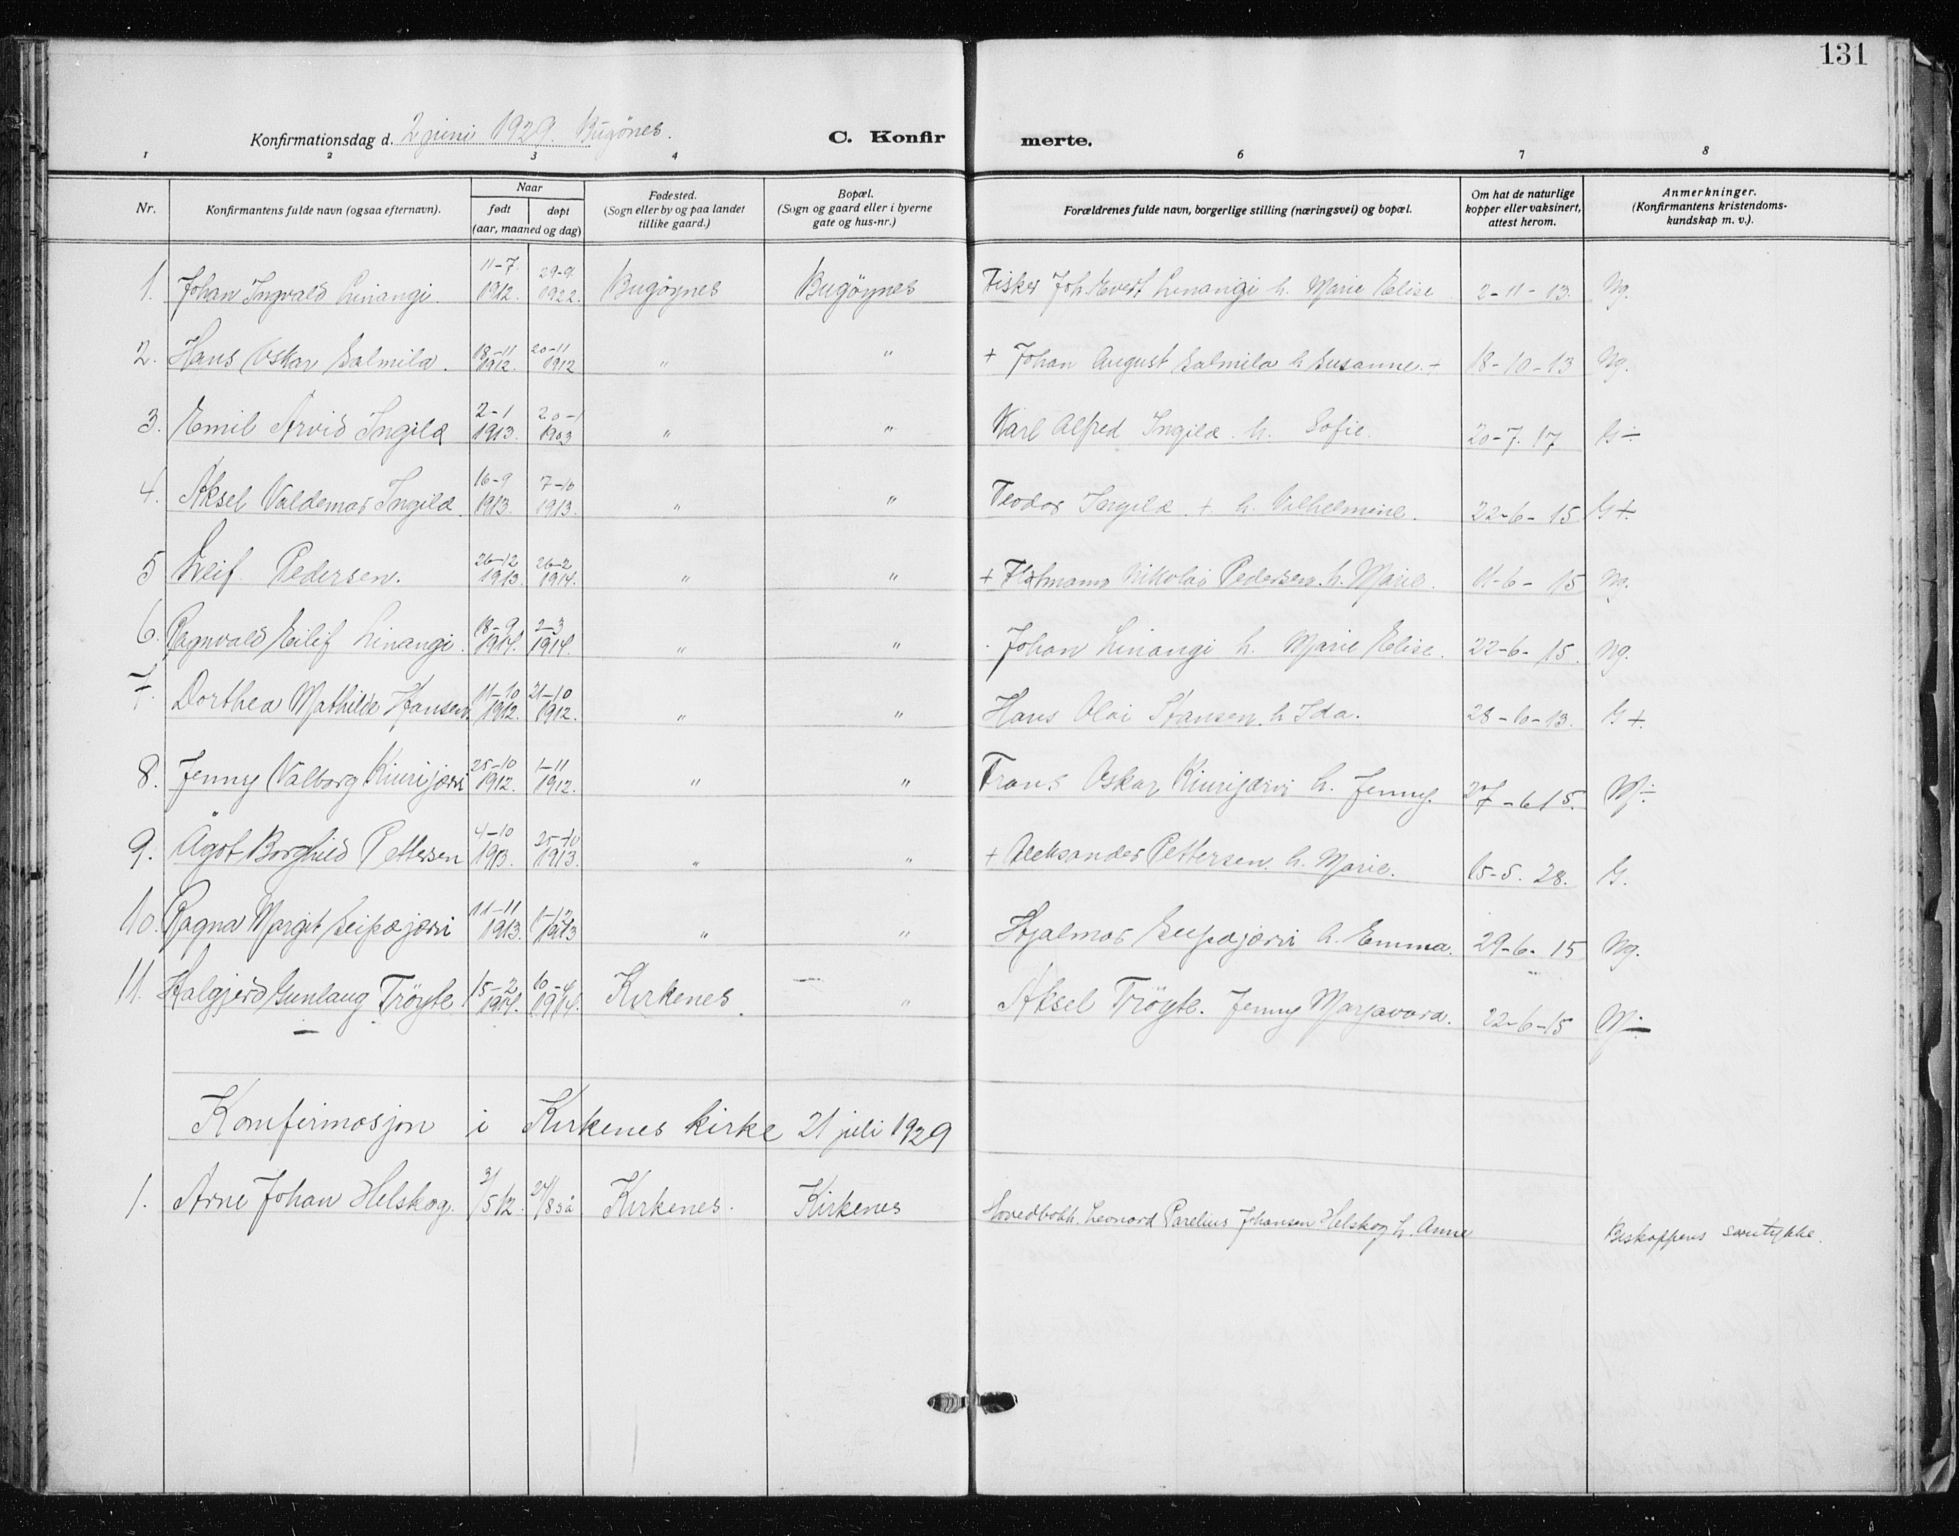 131
Konfirmationsdag d. 2 juni 1929. Bugönes. C. Konfirmerte.
1 2 3 4 5 6 7 8
Nr. Konfirmantens fulde navn (ogsaa efternavn). Naar født døpt (aar, maaned og dag) Fødested. (Sogn eller by og paa landet tillike gaard.) Bopæl. (Sogn og gaard eller i byerne gate og hus-nr.) Forældrenes fulde navn, borgerlige stilling (næringsvei) og bopæl. Om hat de naturlige kopper eller vaksinert, attest herom. Anmerkninger. (Konfirmantens kristendomskundskap m. v.).
1. Johan Ingvald Linangi. 11-7 1912. 29-9 1922. Bugöynes Bugöynes Fisker Joh. Evert Linangi h. Marie Elise 2-11-13. Ng.
2. Hans Oskar Salmila. 18-11 1912. 20-11 1912 " " + Johan August Salmila h. Susanne + 18-10-13 Ng.
3. Emil Arvid Ingilæ 2-1 1913. 20-1 1903 " " Karl Alfred Ingilæ h. Sofie. 20-7. 17 G÷
4. Aksel Valdemar Ingilæ. 16-9 1913. 7-10 1913. " " Teodor Ingilæ + h. Vilhelmine. 22-6-15 G+.
5 Leif Pedersen. 26-12 1913. 26-2 1914. " " + Nikolai Pedersen h. Marie. 11-6-15 Ng.
6. Ragnvald Eilif Linangi. 18-9 1914. 2-3 1914. " " Johan Linangi h. Marie Elise. 22-6-15. Ng.
7. Dorthea Mathilde Hansen. 11-10 1912. 21-10 1912. " " Hans Olai Hansen h. Ida. 28-10-13. G+.
8. Jenny Valborg Kiurijærvi 25-10 1912. 1-11 1912. " " Frans Oskar Kiurijærvi h. Jenny. 27-6 15. M÷
9. Ågot Borghild Pettersen 4-10 1913. 25-10 1913. " " + Aleksander Pettersen. h. Marie. 15-5. 28. G.
10. Ragna Margit Seipæjærvi 11-11 1913. 1-12 1913 " " Hjalmar Seipæjærvi h. Emma. 29-6-15 Ng.
11. Halgjerd Gunlaug Tröyte 15-2 1914. 10-4 1914. Kirkenes. " Aksel Tröyte. Jenny Marjavara. 22-6-15 M÷
Konfirmasjon i Kirkenes kirke 21 juli 1929
1. Arne Johan Helskog. 3/5 12. 27/8 så Kirkenes. Kirkenes Hovedbokh. Leonard Parelius Johansen Helskog h. Anne Biskoppens samtykke.